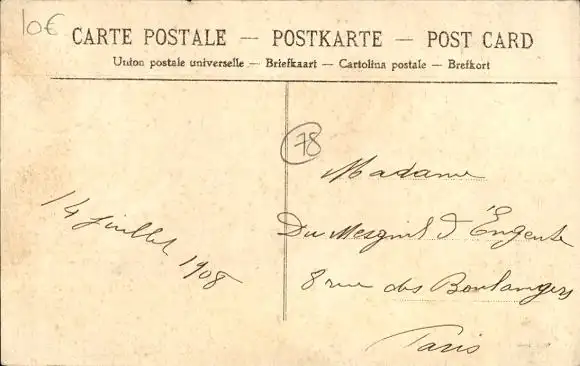 10€
CARTE POSTALE — POSTKARTE — POST CARD
Union postale universelle — Briefkaart — Cartolina postale — Brefkort
78
14 juillet 1908
Madame
Du Mesgnil d'Engente
8 rue des Boulangers
Paris